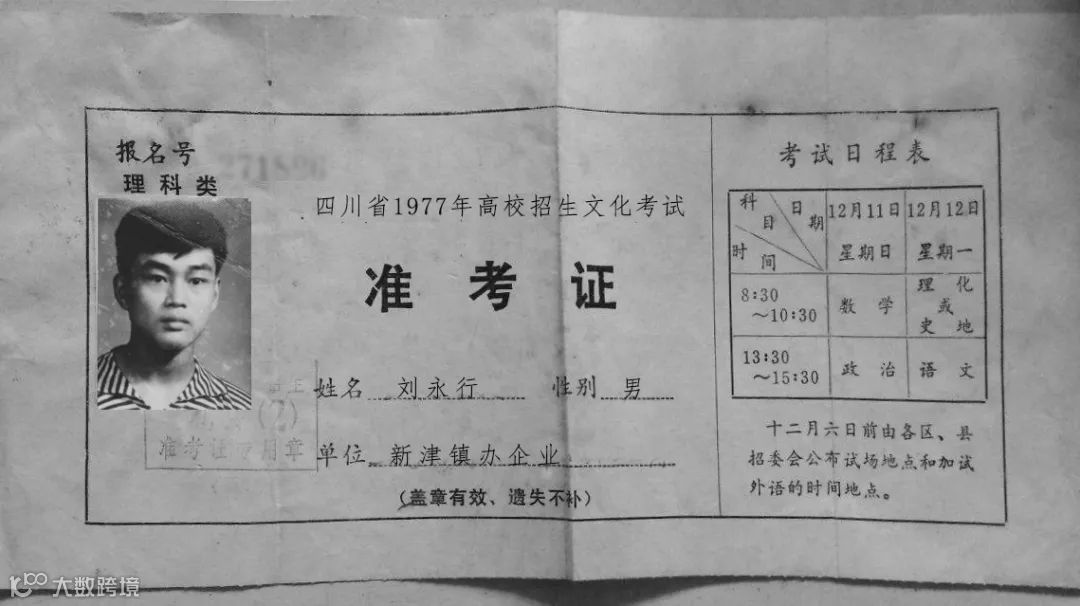 报名号
271896
理科类
四川省1977年高校招生文化考试
准考证
姓名 刘永行 性别 男
单位 新津镇办企业
(盖章有效、遗失不补)
准考证专用章
(7)
考试日程表
科目 日期 时间 12月11日 星期日 12月12日 星期一
8:30～10:30 数学 理化或史地
13:30～15:30 政治 语文
十二月六日前由各区、县
招委会公布试场地点和加试
外语的时间地点。
大数跨境